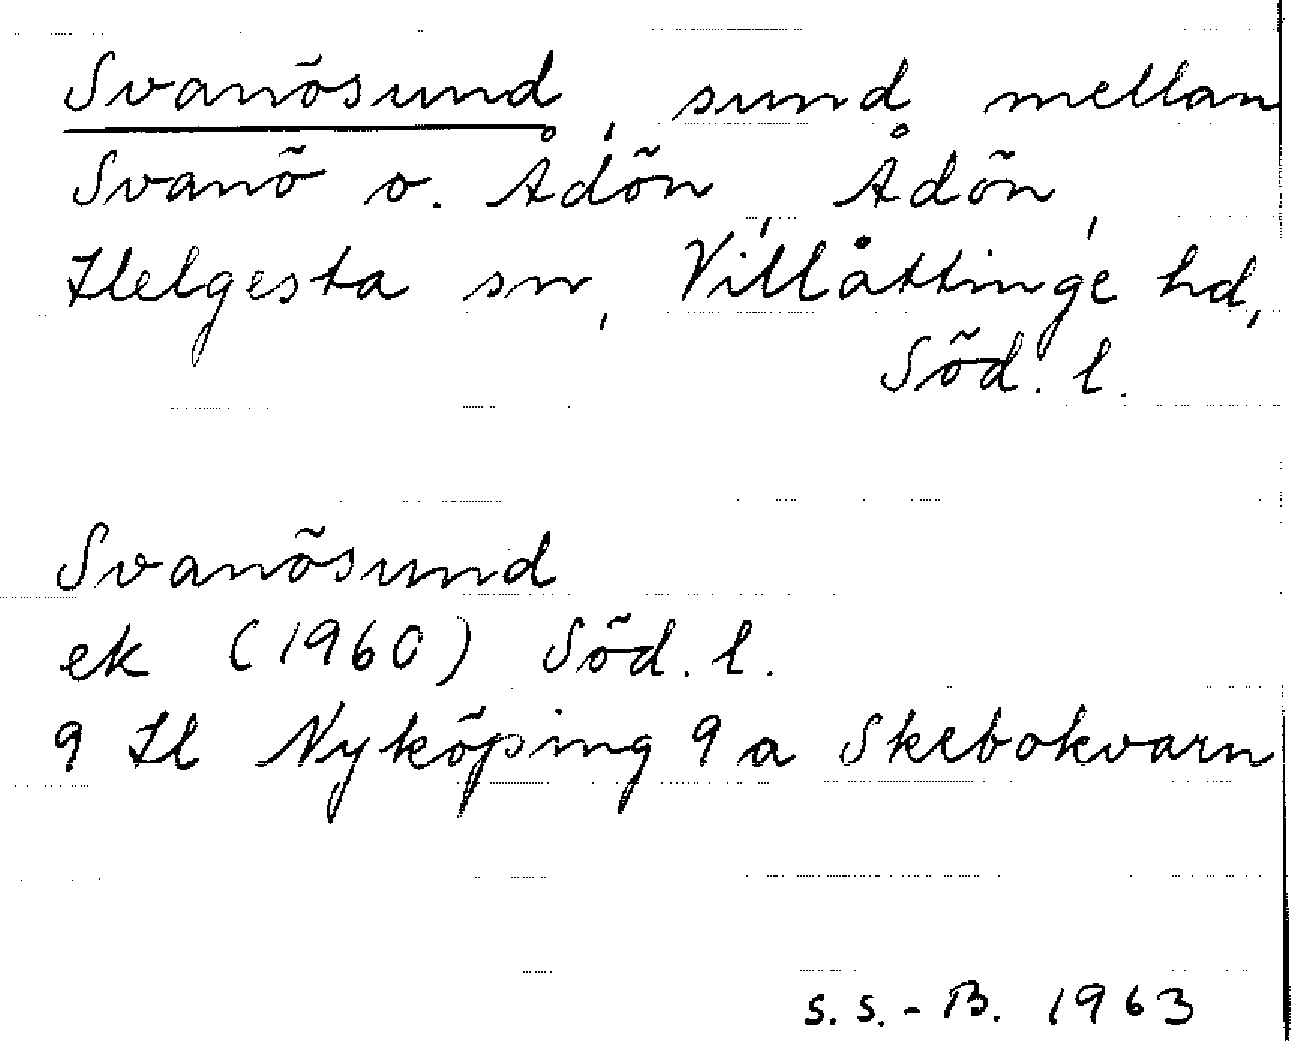 Svanösund, sund mellan
Svanö o. Ådön, Ådön,
Helgesta sn, Villåttinge hd,
Söd. l.
Svanösund
ek (1960) Söd. l.
9 H Nyköping 9 a Skebokvarn
S. S.-B. 1963